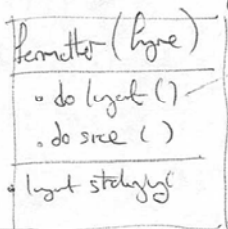 Formatter (
• do layout ()
• do size ()
• layout strategy(